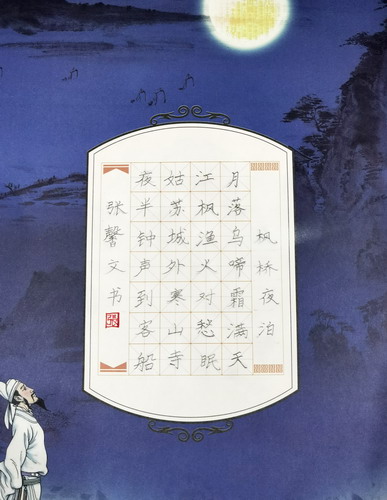 枫桥夜泊
月落乌啼霜满天
江枫渔火对愁眠
姑苏城外寒山寺
夜半钟声到客船
张馨文书